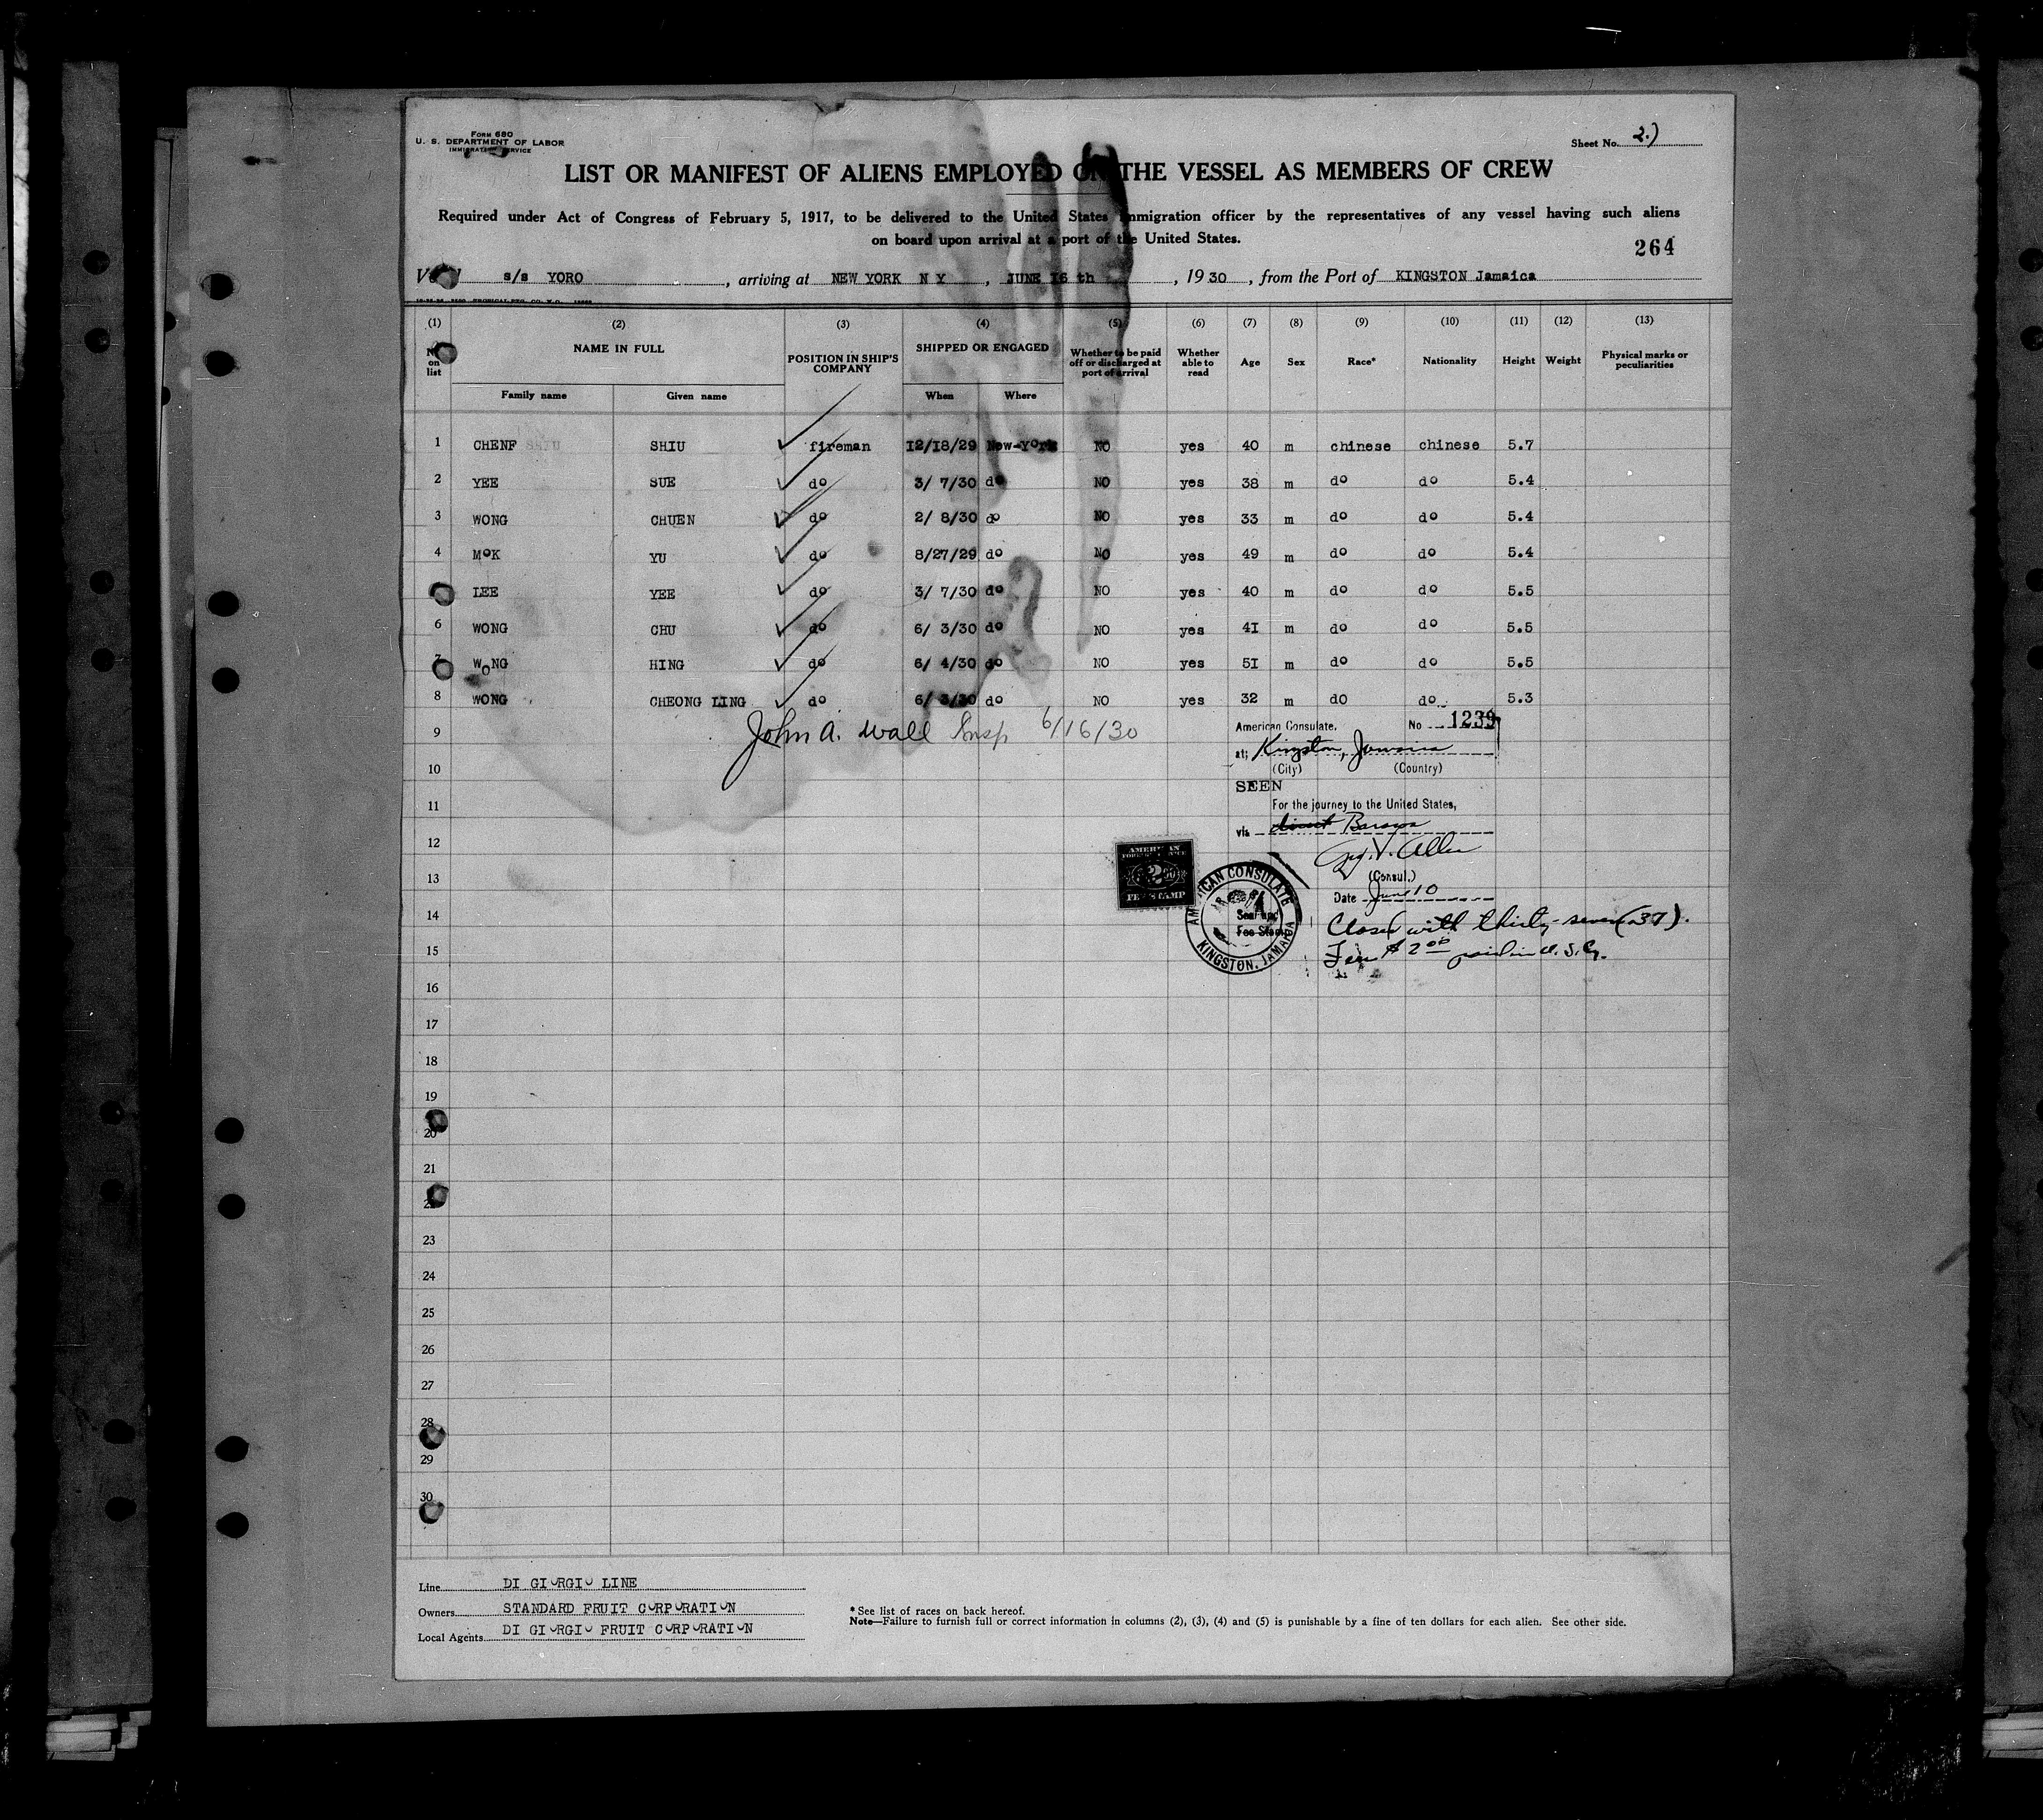 Form 680
U. S. DEPARTMENT OF LABOR
IMMIGRATION SERVICE
Sheet No. 2.)
LIST OR MANIFEST OF ALIENS EMPLOYED ON THE VESSEL AS MEMBERS OF CREW
Required under Act of Congress of February 5, 1917, to be delivered to the United States Immigration officer by the representatives of any vessel having such aliens
on board upon arrival at a port of the United States.
264
Vessel s/s YORO, arriving at NEW YORK N Y, JUNE 16 th, 1930, from the Port of KINGSTON Jamaica
(1) (2) (3) (4) (5) (6) (7) (8) (9) (10) (11) (12) (13)
No. on list NAME IN FULL POSITION IN SHIP'S COMPANY SHIPPED OR ENGAGED Whether to be paid off or discharged at port of arrival Whether able to read Age Sex Race* Nationality Height Weight Physical marks or peculiarities
Family name Given name When Where
1 CHENF SHIU SHIU fireman 12/18/29 New-York NO yes 40 m chinese chinese 5.7
2 YEE SUE do 3/ 7/30 do NO yes 38 m do do 5.4
3 WONG CHUEN do 2/ 8/30 do NO yes 33 m do do 5.4
4 MOK YU do 8/27/29 do NO yes 49 m do do 5.4
LEE YEE do 3/ 7/30 do NO yes 40 m do do 5.5
6 WONG CHU do 6/ 3/30 do NO yes 41 m do do 5.5
7 WONG HING do 6/ 4/30 do NO yes 51 m do do 5.5
8 WONG CHEONG LING do 6/ 3/30 do NO yes 32 m dO do 5.3
9 John A. Wall Insp 6/16/30
American Consulate, No 1239
at; Kingston, Jamaica
10 (City) (Country)
SEEN
11 For the journey to the United States,
via direct
12
AMERICAN
FOREIGN SERVICE
2
FEE STAMP
AMERICAN CONSULATE
Seal and
Fee Stamp
KINGSTON, JAMAICA
Geo. V. Allen
13 (Consul.)
Date June 10
14 Closed with thirty-seven (37).
15 Fee $2.00 paid in U.S.G.
16
17
18
19
20
21
22
23
24
25
26
27
28
29
30
Line DI GIORGIO LINE
Owners STANDARD FRUIT CORPORATION
Local Agents DI GIORGIO FRUIT CORPORATION
* See list of races on back hereof.
Note—Failure to furnish full or correct information in columns (2), (3), (4) and (5) is punishable by a fine of ten dollars for each alien. See other side.